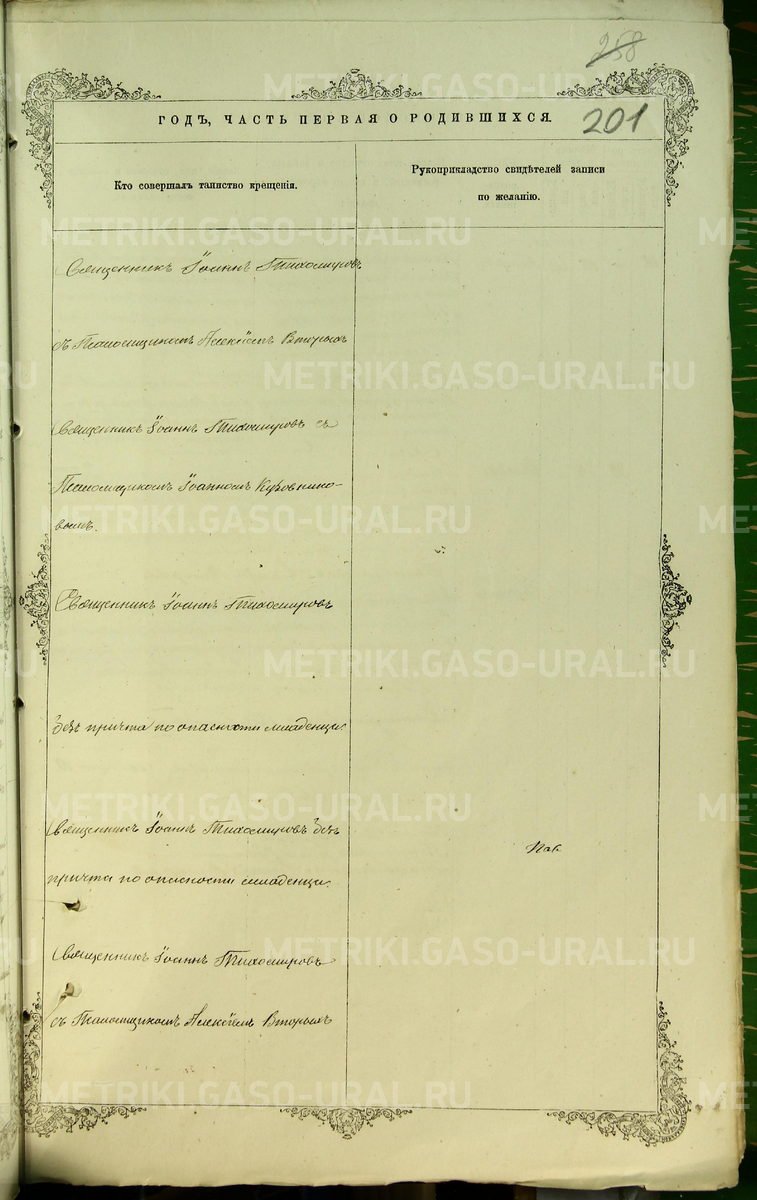 258
201
ГОДЪ, ЧАСТЬ ПЕРВАЯ О РОДИВШИХСЯ.
Кто совершалъ таинство крещенія.
Рукоприкладство свидѣтелей записи
по желанію.
Священникъ Іоаннъ Тихомировъ
съ Псаломщикомъ Алексіемъ Вторыхъ
Священникъ Іоаннъ Тихомировъ съ
Псаломщикомъ Іоанномъ
вымъ.
Священникъ Іоаннъ Тихомировъ
безъ причта по опасности младенца.
Священникъ Іоаннъ Тихомировъ безъ
причта по опасности младенца.
Священникъ Іоаннъ Тихомировъ
съ Псаломщикомъ Алексіемъ Вторыхъ
METRIKI.GASO-URAL.RU